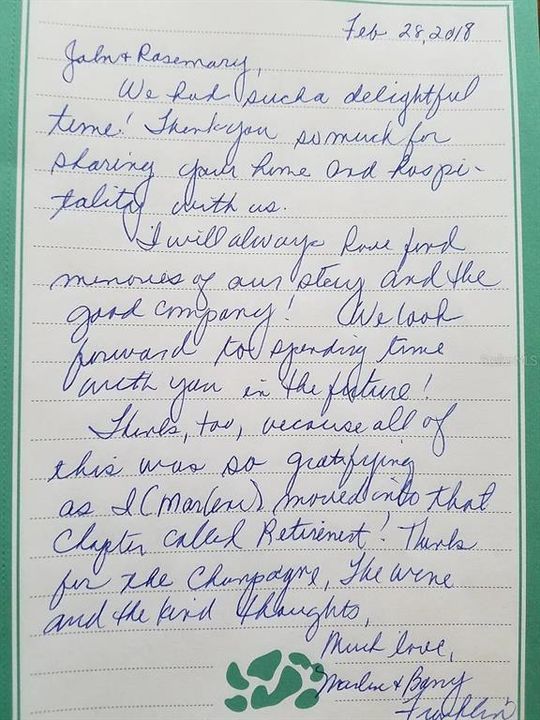 Feb 28, 2018
John + Rosemary,
We had such a delightful
time! Thank you so much for
sharing your home and hospi-
tality with us.
I will always have fond
memories of our stay and the
good company! We look
forward to spending time
with you in the future!
Thanks, too, because all of
this was so gratifying
as I (Marlene) moved into that
Chapter called Retirement! Thanks
for the Champagne, the wine
and the kind thoughts,
Much love,
Marlene + Barry
Franklin